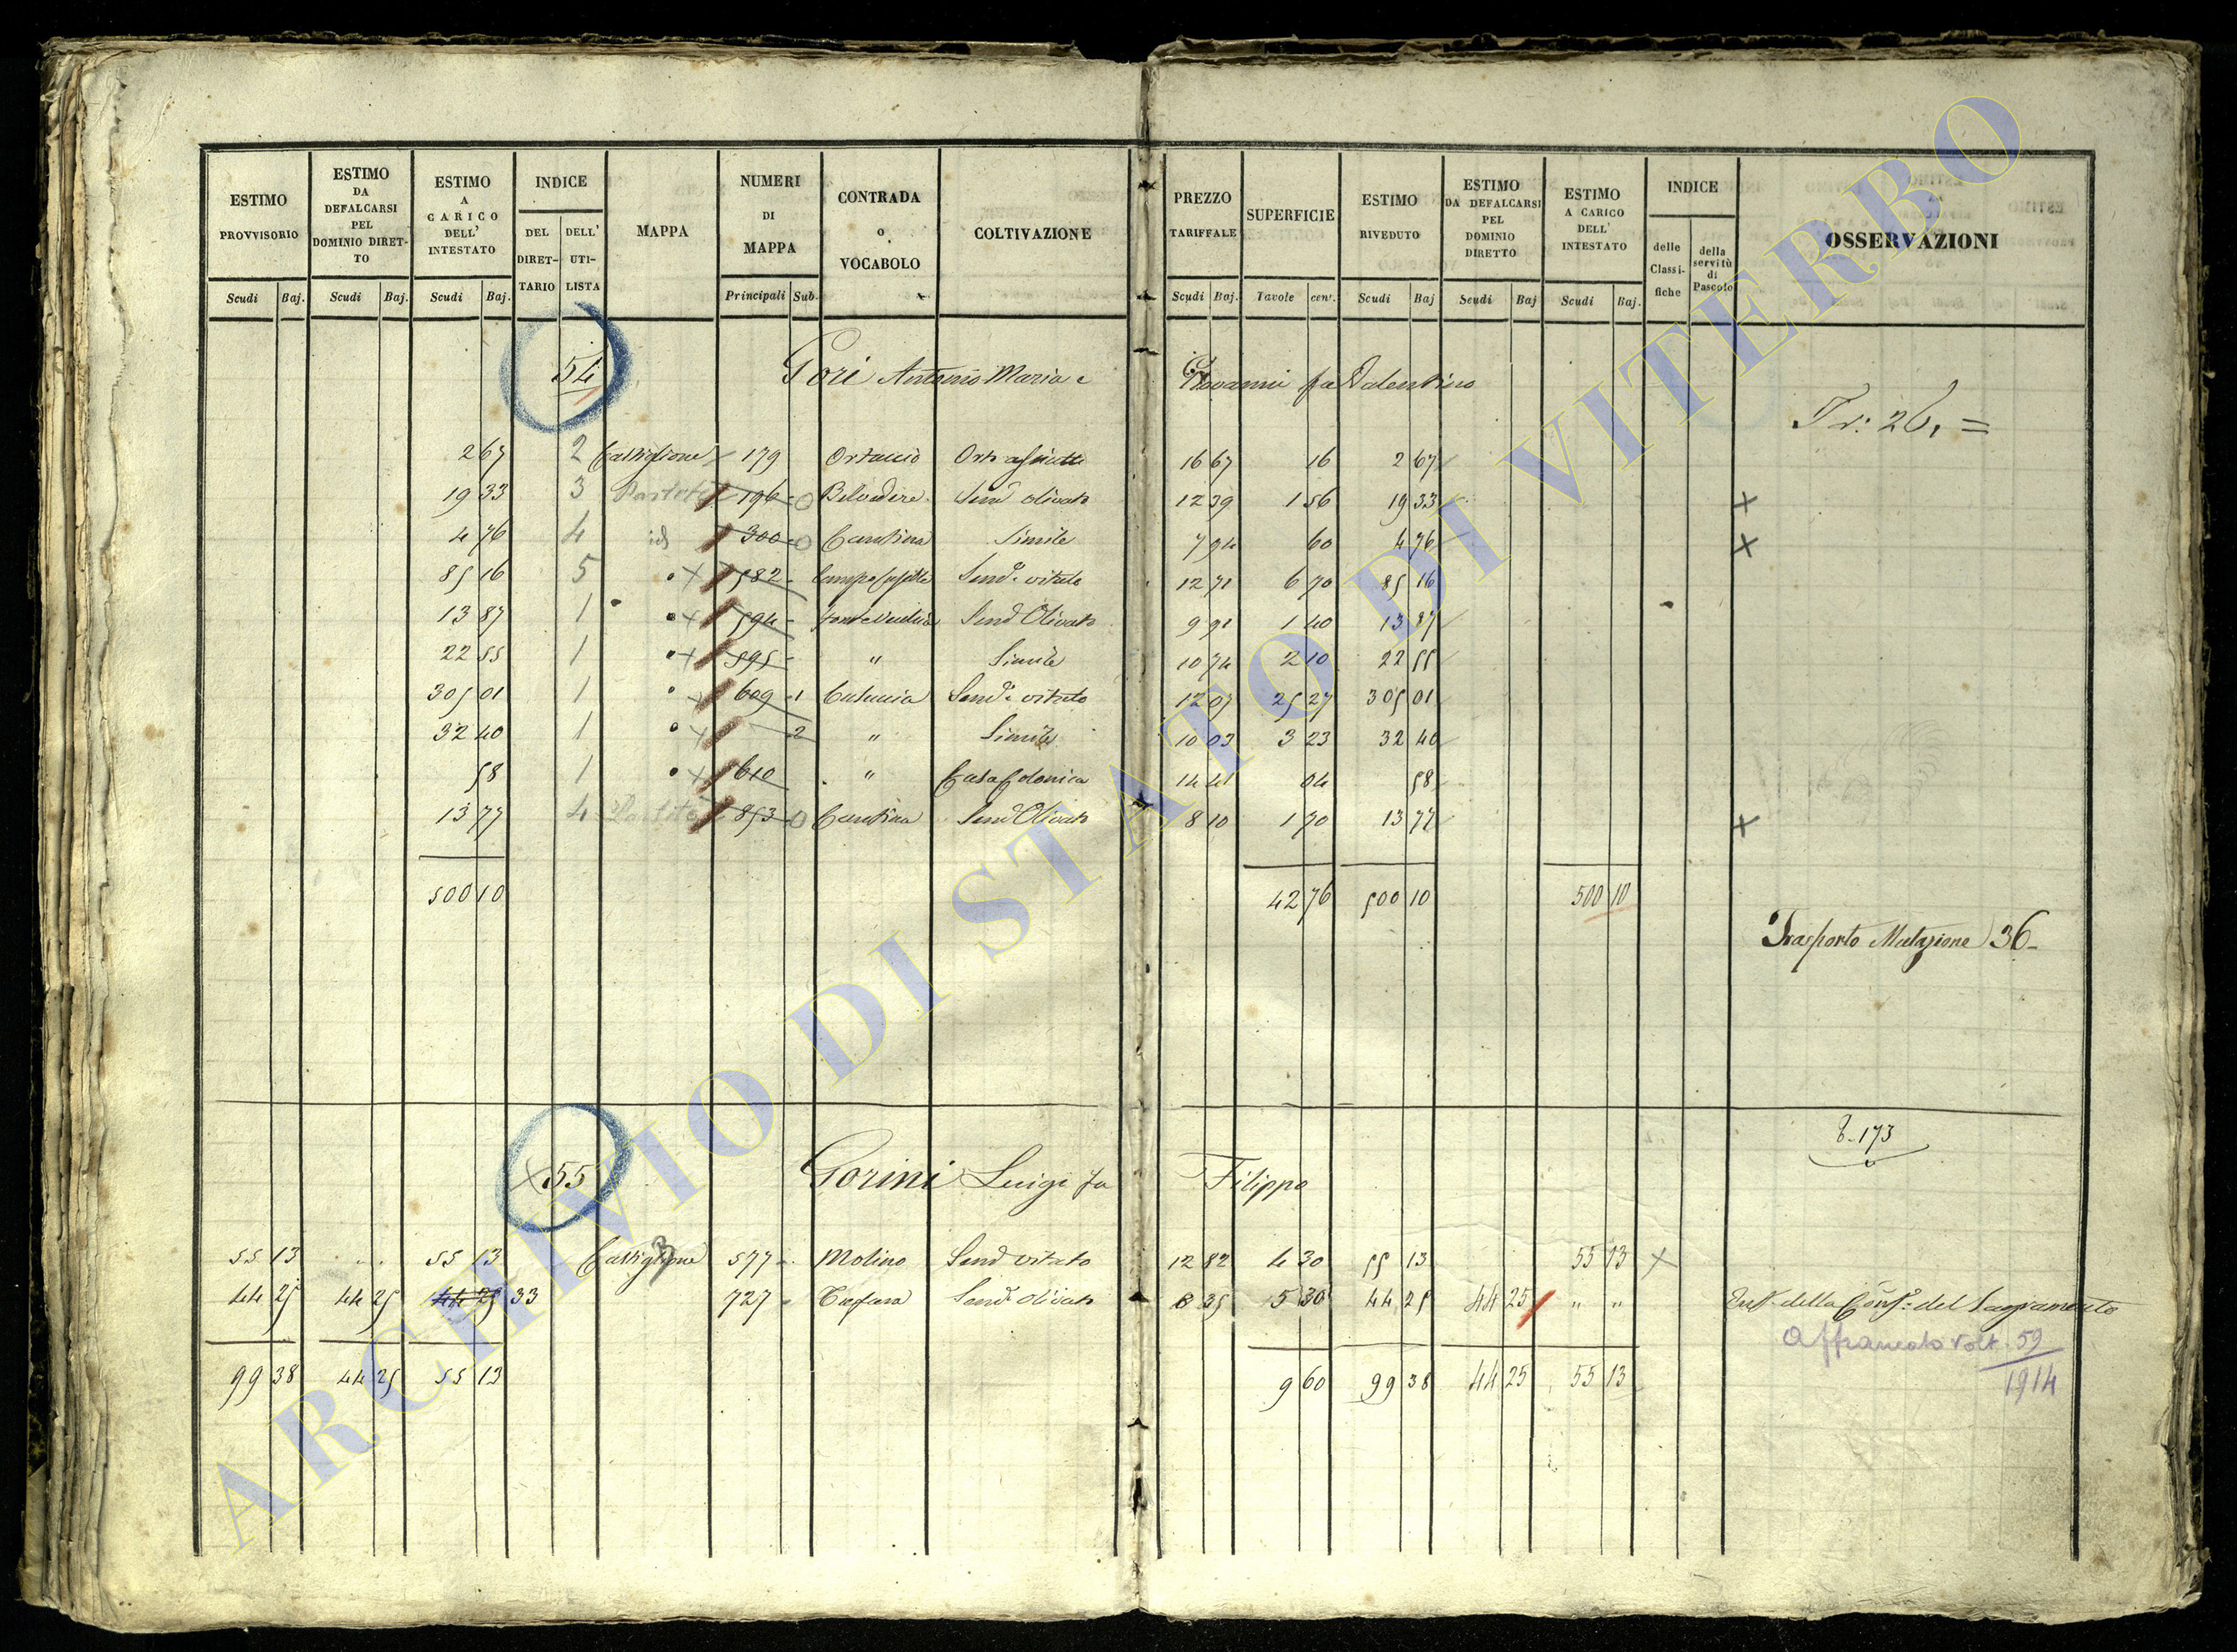 ESTIMO PROVVISORIO
ESTIMO DA DEFALCARSI PEL DOMINIO DIRETTO
ESTIMO A CARICO DELL' INTESTATO
INDICE
DEL DIRETTARIO
DELL' UTILISTA
MAPPA
NUMERI DI MAPPA
CONTRADA o VOCABOLO
COLTIVAZIONE
PREZZO TARIFFALE
SUPERFICIE
ESTIMO RIVEDUTO
ESTIMO DA DEFALCARSI PEL DOMINIO DIRETTO
ESTIMO A CARICO DELL' INTESTATO
INDICE
delle Classifiche
della servitù di Pascolo
OSSERVAZIONI
Scudi Baj. Scudi Baj. Scudi Baj. Principali Sub. Scudi Baj. Tavole cent. Scudi Baj Scudi Baj Scudi Baj.
54 Gori Antonio Maria e Giovanni fu Valentino
2 67 2 Castiglione 179 Ortaccio 16 67 16 2 67
19 33 3 196 Belvedere Semo olivato 12 39 1 56 19 33 x
4 76 4 id 300 Cantina Simile 7 94 60 4 76 x
85 16 5 x 582 Semo vitato 12 71 6 70 85 16
13 87 1 x 594 Semo Olivato 9 91 1 40 13 87
22 55 1 x 595 " Simile 10 74 2 10 22 55
305 01 1 x 609 1 Semo vitato 12 07 25 27 305 01
32 40 1 x 2 " Simile 10 03 3 23 32 40
58 1 x 610 " Casa Colonica 14 41 04 58
13 77 4 853 Cantina Semo Olivato 8 10 1 70 13 77 x
500 10 42 76 500 10 500 10
Trasporto Mutazione 36
173
x 55 Gorini Luigi fu Filippo
55 13 " " 55 13 Castiglione 577 Molino Semo vitato 12 82 4 30 55 13 55 13 x
44 25 44 25 44 25 33 727 Semo olivato 8 35 5 30 44 25 44 25 " " della Conf. del Sagramento
Affrancato Volt. 59
1914
99 38 44 25 55 13 9 60 99 38 44 25 55 13
ARCHIVIO DI STATO DI VITERBO